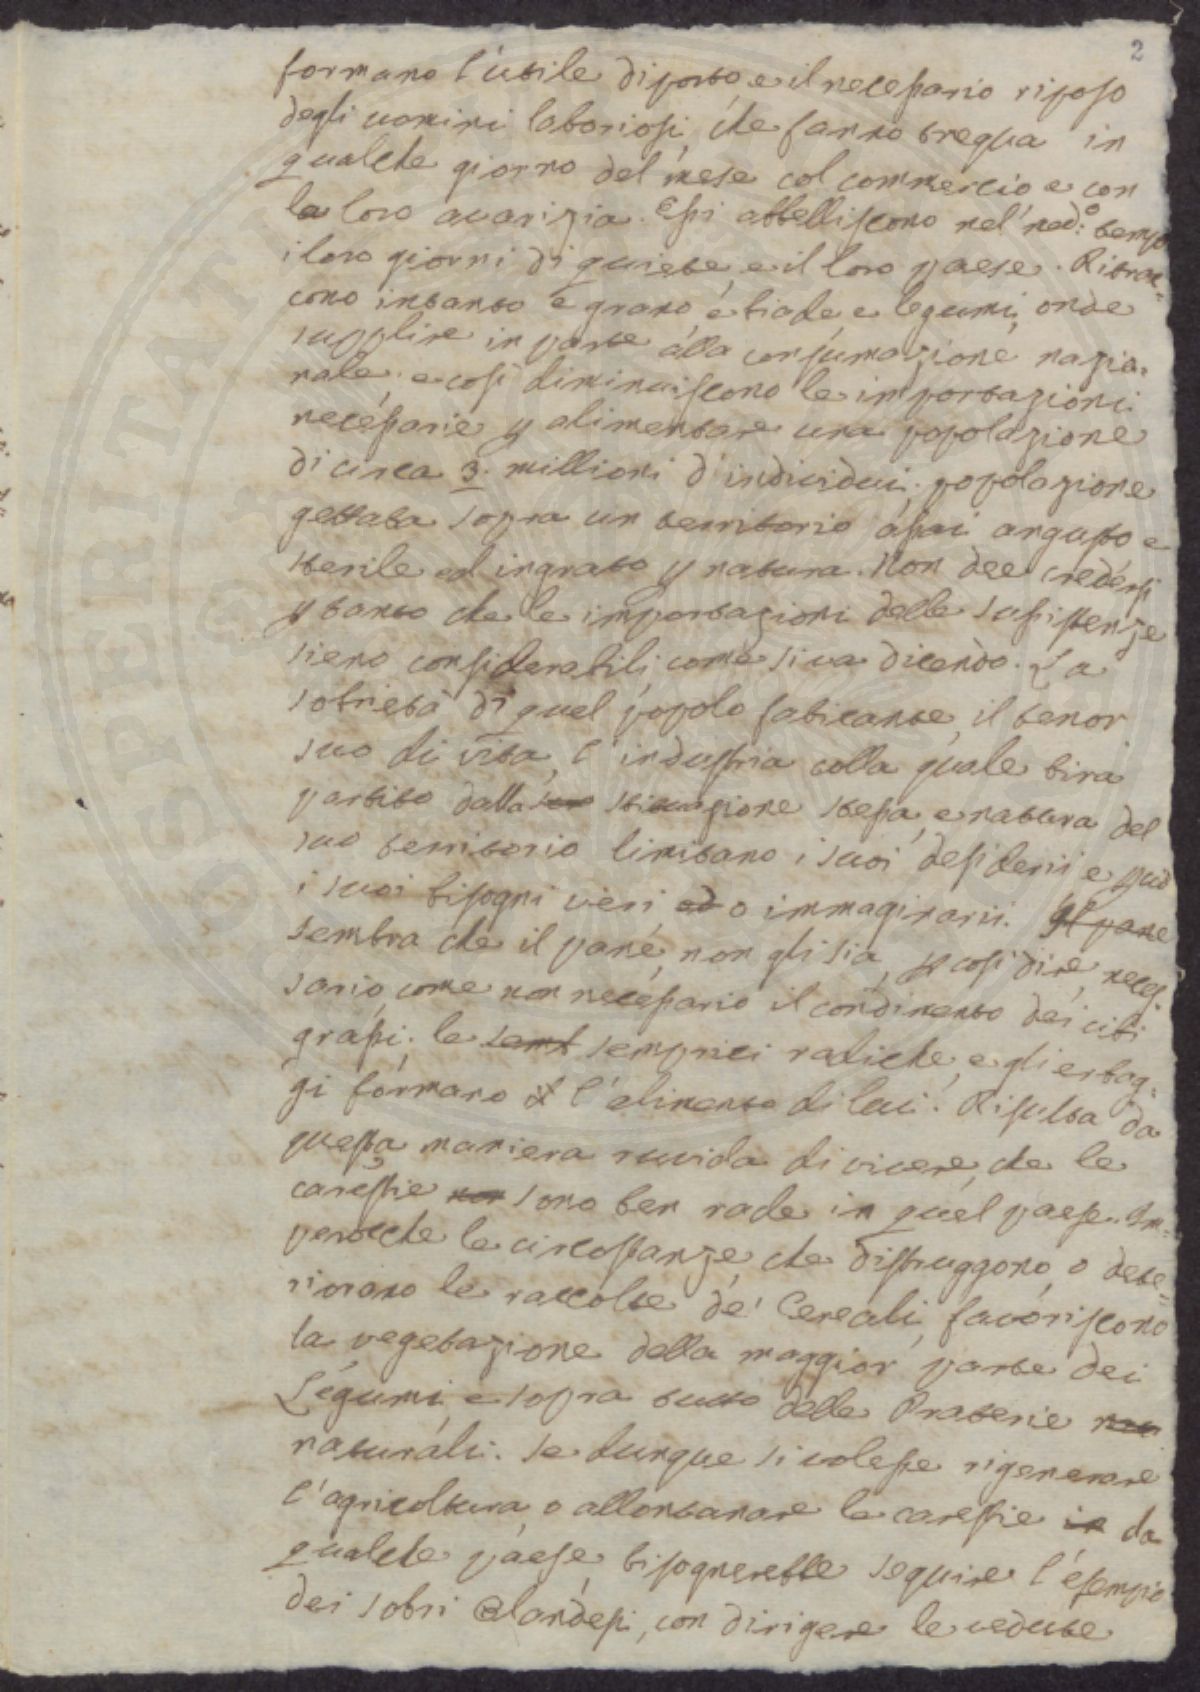 2
formano l'utile diporto e il necessario riposo
degli uomini laboriosi, che fanno tregua in
qualche giorno del mese col commercio e con
la loro avarizia. Essi abbelliscono nel med:o tempo
i loro giorni di quiete, e il loro paese. Ritrag=
gono intanto e grano e biade e legumi, onde
supplire in parte alla consumazione nazio=
nale, e così diminuiscono le importazioni
necessarie p alimentare una popolazione
di circa 3. millioni d'individui, popolazione
gettata sopra un territorio assai angusto e
sterile ed ingrato p natura. Non dee credersi
p tanto che le importazioni delle sussistenze
sieno considerabili, come si va dicendo. La
sobrietà di quel popolo faticante, il tenor
suo di vita, l'industria colla quale tira
partito dalla situazione stessa, e natura del
suo territorio limitano i suoi desiderii e
i suoi bisogni veri ed o immaginarii. Il pane
sembra che il pane non gli sia, p così dire, neces=
sario, come non necessario il condimento dei cibi
grassi; le semplici radiche, e gli erbag=
gi formano l'alimento di lui. Risulta da
questa maniera ruvida di vivere, che le
carestie non sono ben rade in quel paese. Im=
perocche le circostanze, che distruggono, o dete=
riorano le raccolte de' Cereali, favoriscono
la vegetazione della maggior parte dei
Legumi e sopra tutto delle Praterie
naturali. Se dunque si volesse rigenerare
l'agricoltura, o allontanare le carestie in da
qualche paese, bisognerebbe seguire l'esempio
dei sobri Olandesi, con dirigere le vedute